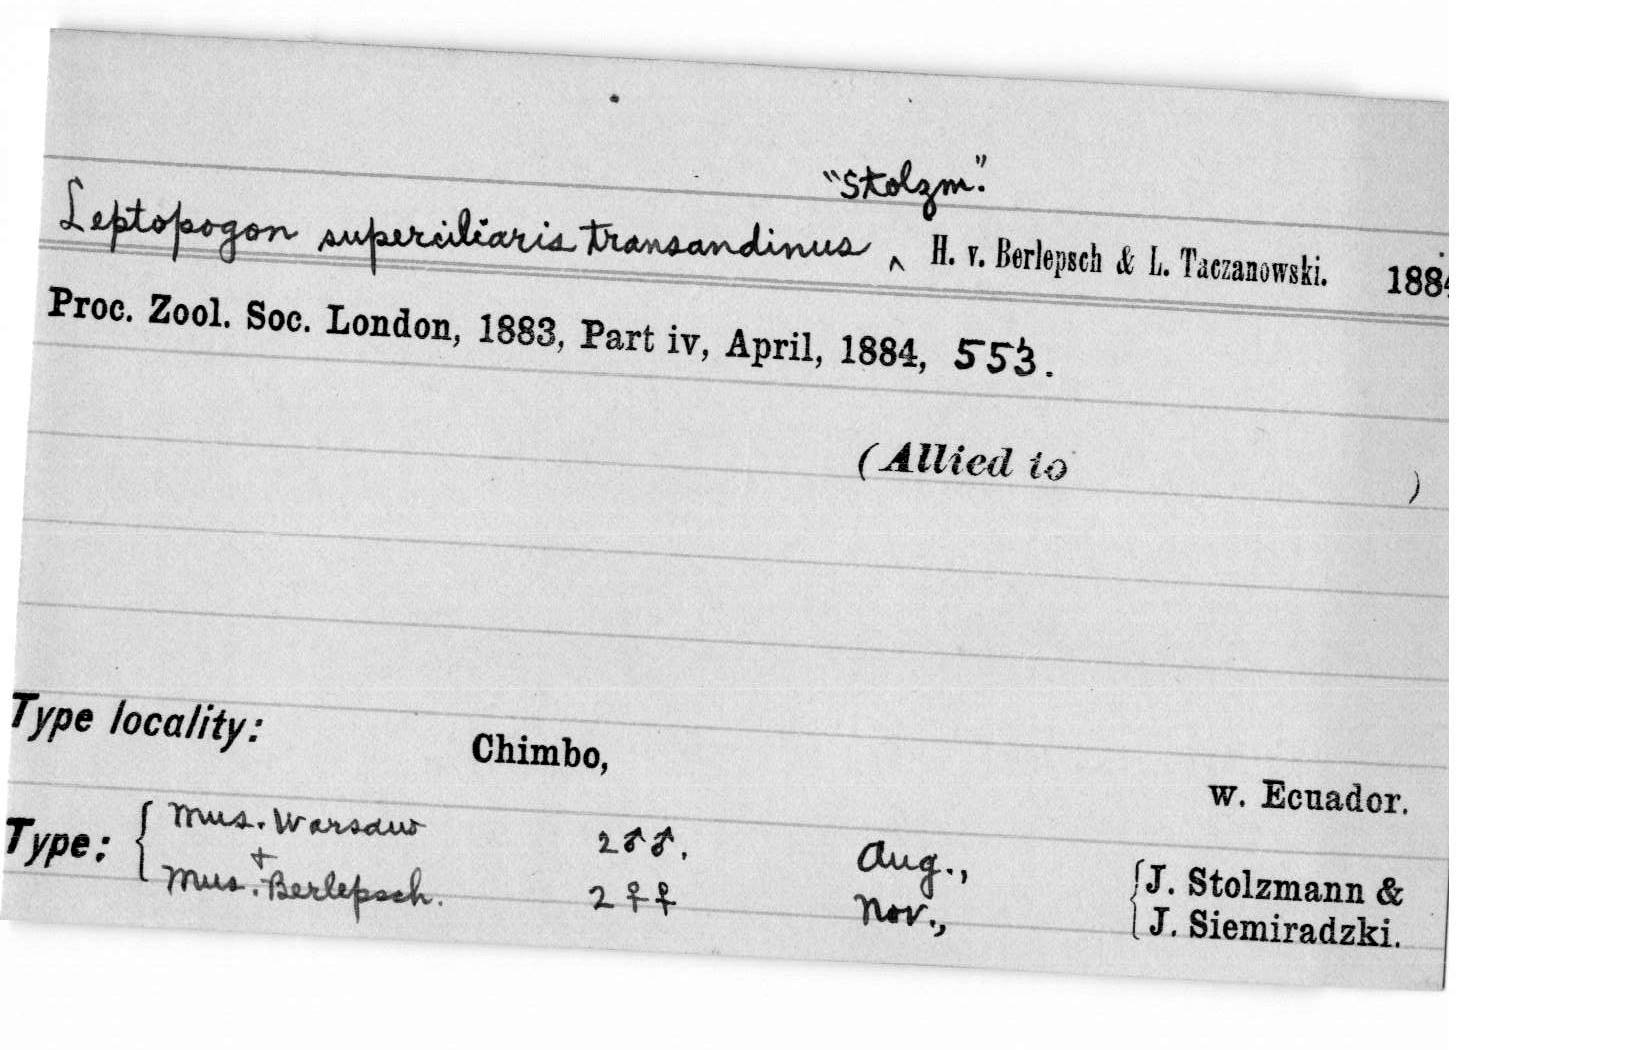 "Stolzm."
Leptopogon superciliaris transandinus ‸ H. v. Berlepsch & L. Taczanowski. 1884
Proc. Zool. Soc. London, 1883, Part iv, April, 1884, 553.
(Allied to )
Type locality:
Chimbo,
w. Ecuador.
Type: { Mus. Warsaw 2♂♂. Aug., { J. Stolzmann &
+
Mus. Berlepsch. 2♀♀ Nov., J. Siemiradzki.